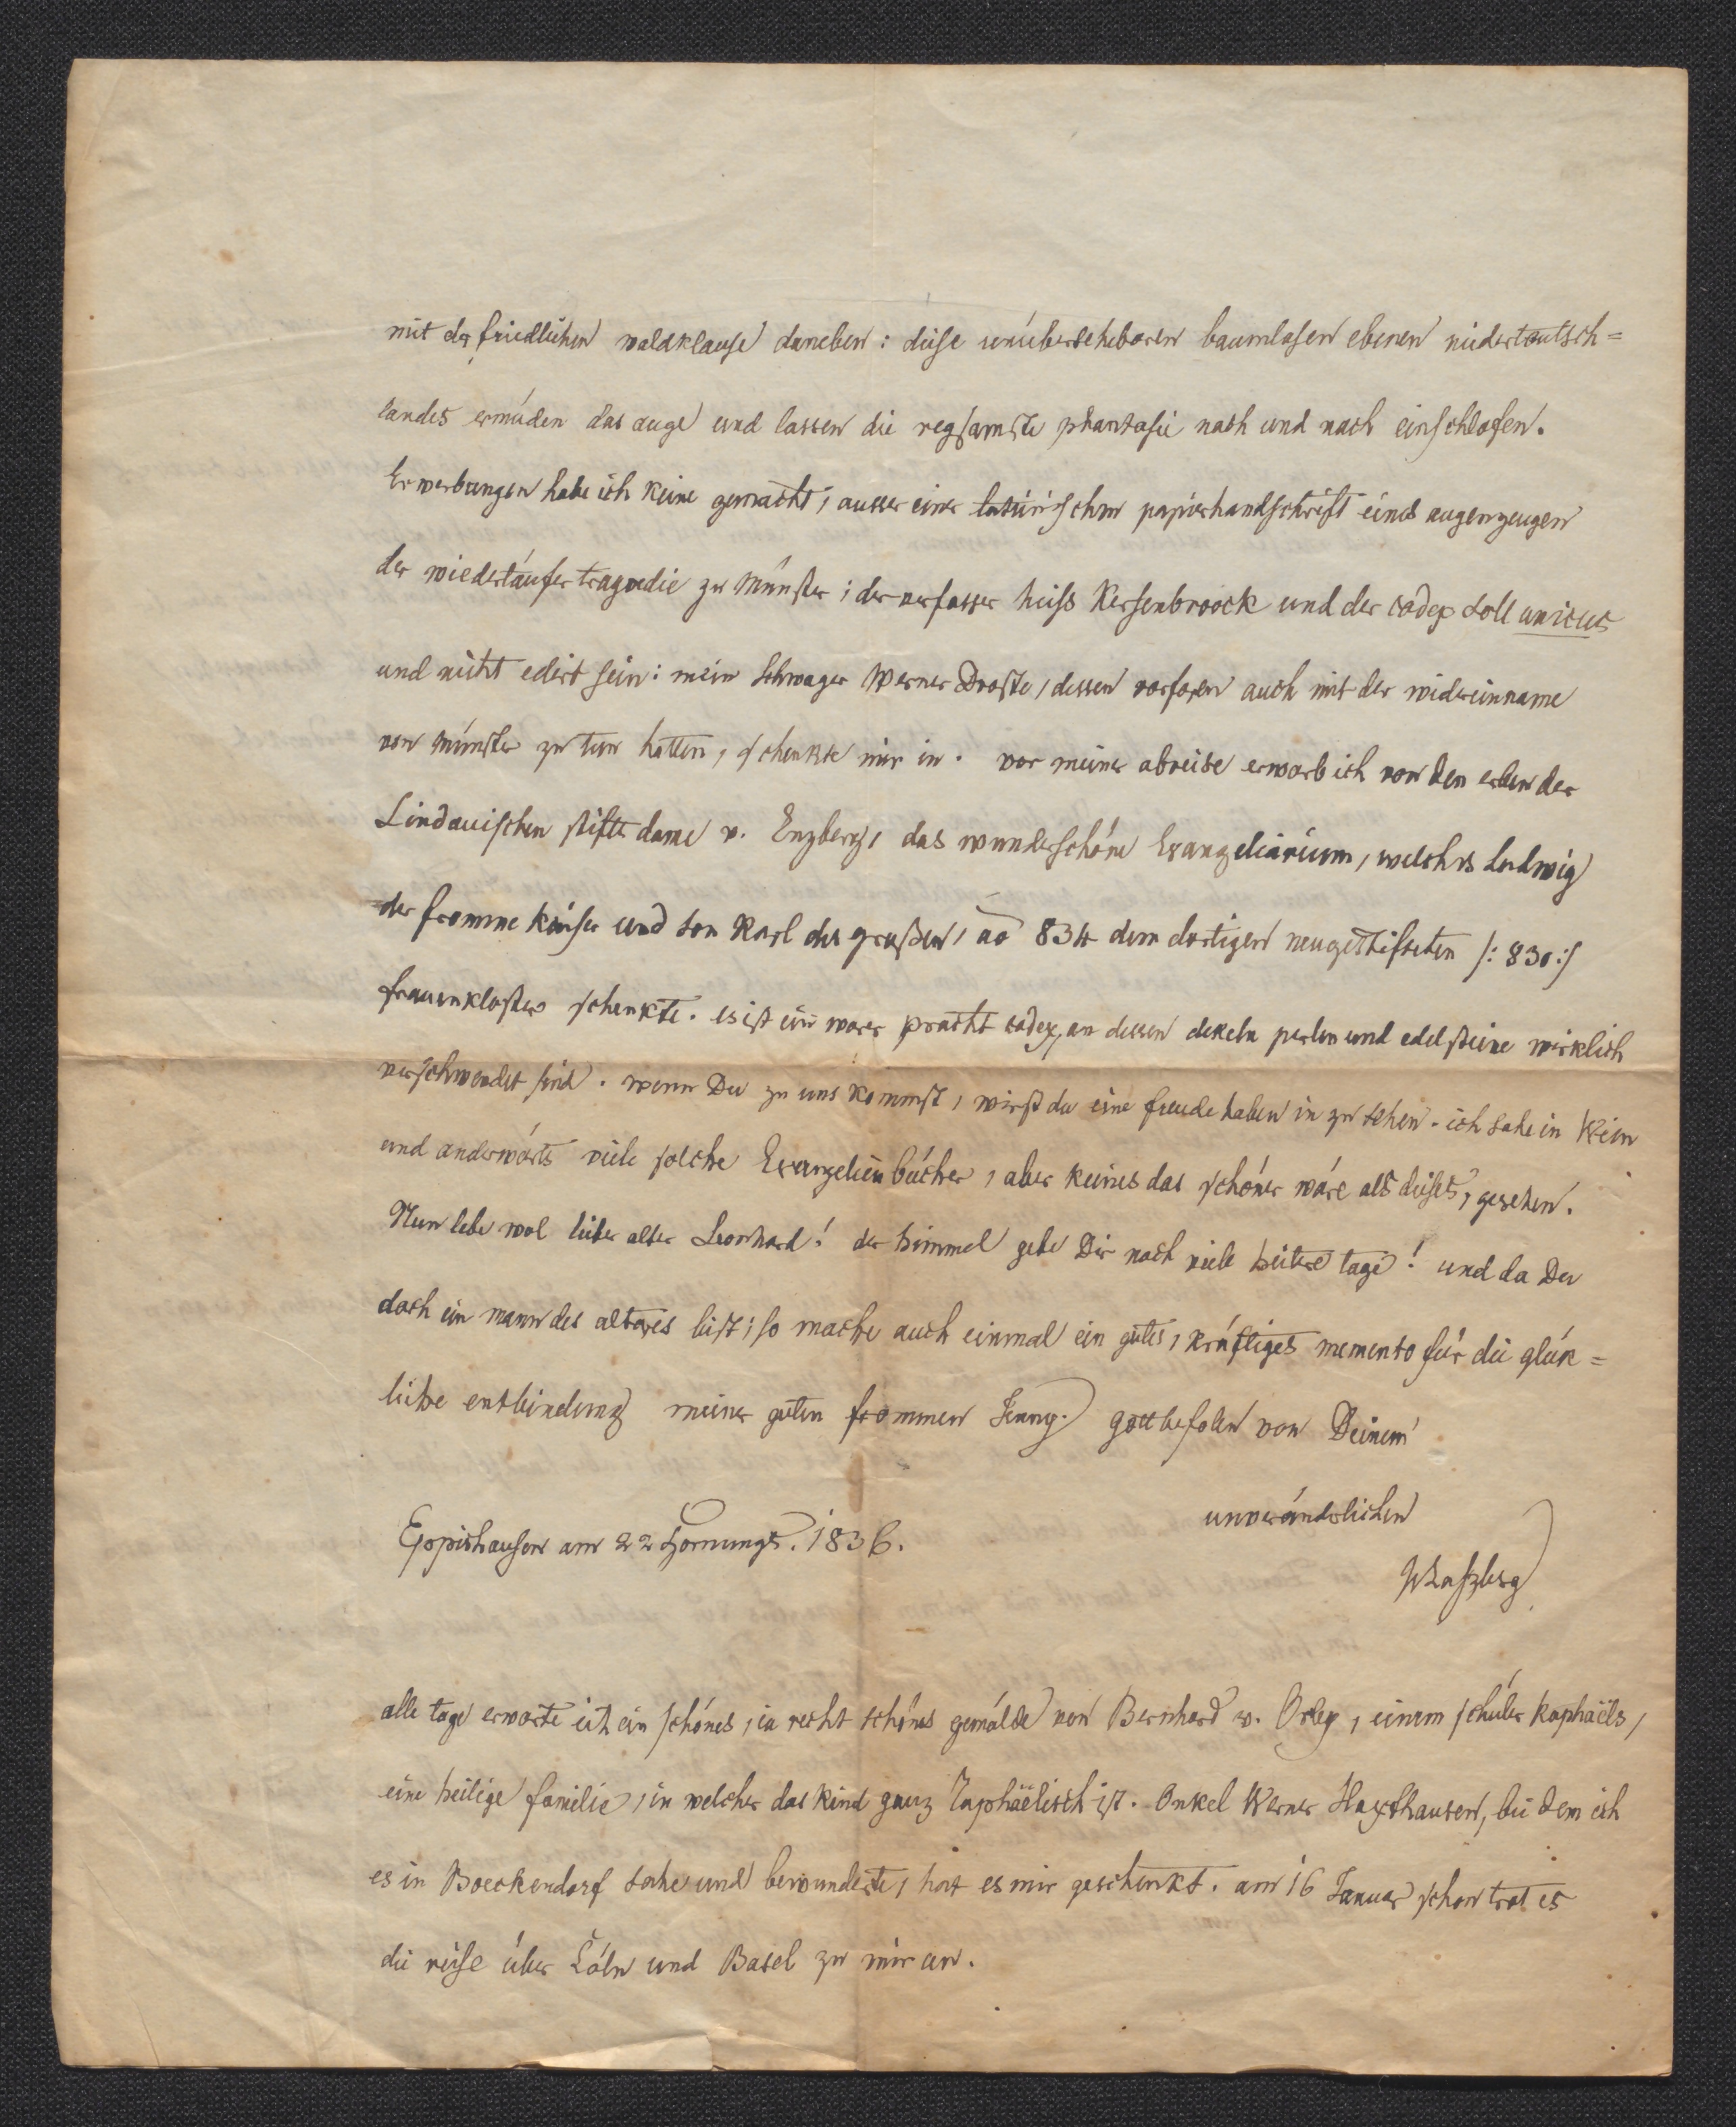 mit der friedlichen waldklause daneben: diese unúbersehebaren baumlosen ebenen niderteutsch=
landes ermúden das auge und lassen die regsamste phantasie nach und nach einschlafen.
Erwerbungen habe ich keine gemacht, ausser einer lateinischen papierhandschrift eines augenzeugen
der wiedertäufer tragoedie zu Múnster; der verfasser heiss Kersenbroock und der codex soll unicus
und nicht edirt sein: mein Schwager Werner Droste, dessen vorfaren auch mit der widereinname
von Múnster zu tun hatten, schenkte mir in. vor meiner abreise erwarb ich von den erben der
Lindauischen stifts dame v. Enzberg, das wunderschöne Evangeliarium, welches Ludwig
der fromme kaiser und son Karl des grossen, aō 834 dem dortigen neugestifteten /: 830 :/
frauenkloster schenkte. es ist ein warer pracht codex, an dessen dekeln perlen und edelsteine wirklich
verschwendet sind. wenn Du zu uns kommst, wirst du eine freude haben in zu sehen. ich habe in
und anderwárts viele solche Evangelien bücher, aber keines das schöner wáre als dieses, gesehen.
Nun lebe wol lieber alter Leonhard! der himmel gebe Dir noch viele heitere tage! und da Du
doch ein mann des altares bist; so mache auch einmal ein gutes, kráftiges memento fúr die glúk=
liche entbindung meiner guten frommen Jenny. gott befolen von Deinem
unveránderlichen
Eppishausen am 22 Hornungs. 1836.
JvLaszberg
alle tage erwarte ich ein schönes, ia recht schönes gemálde von Bernhard v. Orley, einem schúler Raphaëls,
eine heilige familie, in welcher das kind ganz raphaëlisch ist. Onkel Werner Haxthausen, bei dem ich
es in Boeckendorf sahe und bewunderte, hat es mir geschenkt. am 16 Januar schon trat es
die reise úber Cöln und Basel zu mir an.